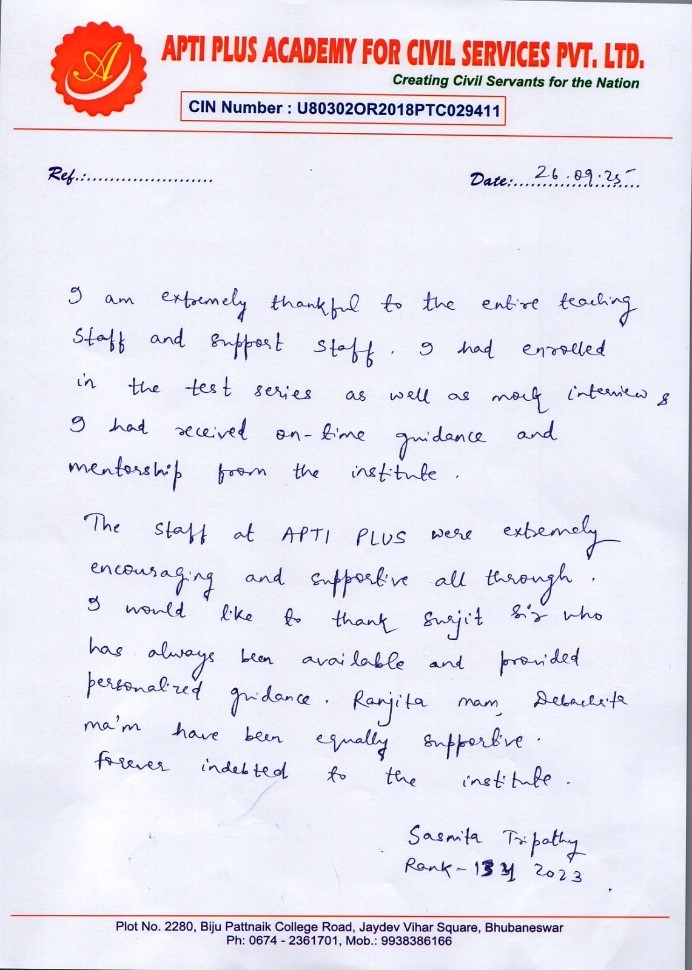 A
APTI PLUS ACADEMY FOR CIVIL SERVICES PVT. LTD.
Creating Civil Servants for the Nation
CIN Number : U80302OR2018PTC029411
Ref.:......................
Date:......26.09.25......
I am extremely thankful to the entire teaching
staff and support staff. I had enrolled
in the test series as well as mock interview &
I had received on-time guidance and
mentorship from the institute.
The staff at APTI PLUS were extremely
encouraging and supportive all through.
I would like to thank Surjit Sir who
has always been available and provided
personalized guidance. Ranjita mam,
ma'm have been equally supportive.
forever indebted to the institute.
Sasmita Tripathy
Rank - 2023
Plot No. 2280, Biju Pattnaik College Road, Jaydev Vihar Square, Bhubaneswar
Ph: 0674 - 2361701, Mob.: 9938386166